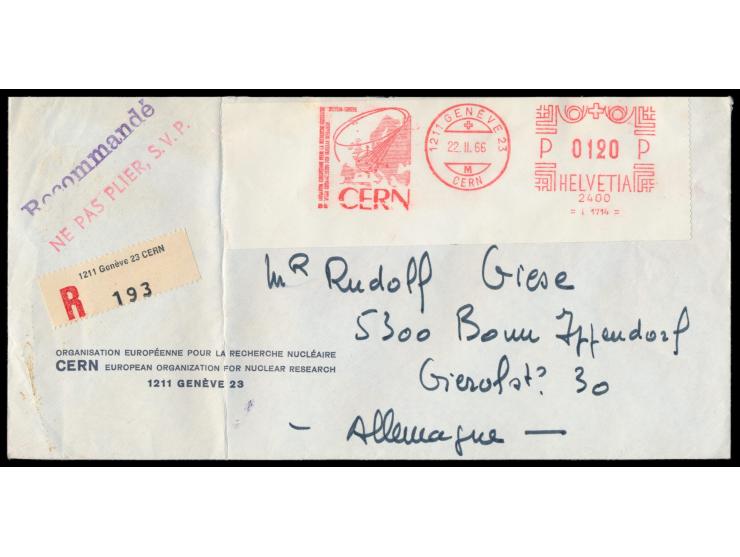 Recommandé
NE PAS PLIER, S.V.P.
CERN
1211 GENÈVE 23
22.II.66
M
CERN
P 0120 P
HELVETIA
2400
= I 1714 =
1211 Genève 23 CERN
R 193
ORGANISATION EUROPÉENNE POUR LA RECHERCHE NUCLÉAIRE
CERN EUROPEAN ORGANIZATION FOR NUCLEAR RESEARCH
1211 GENÈVE 23
MR Rudolf Giese
5300 Bonn Ippendorf
Gierolst? 30
- Allemagne -